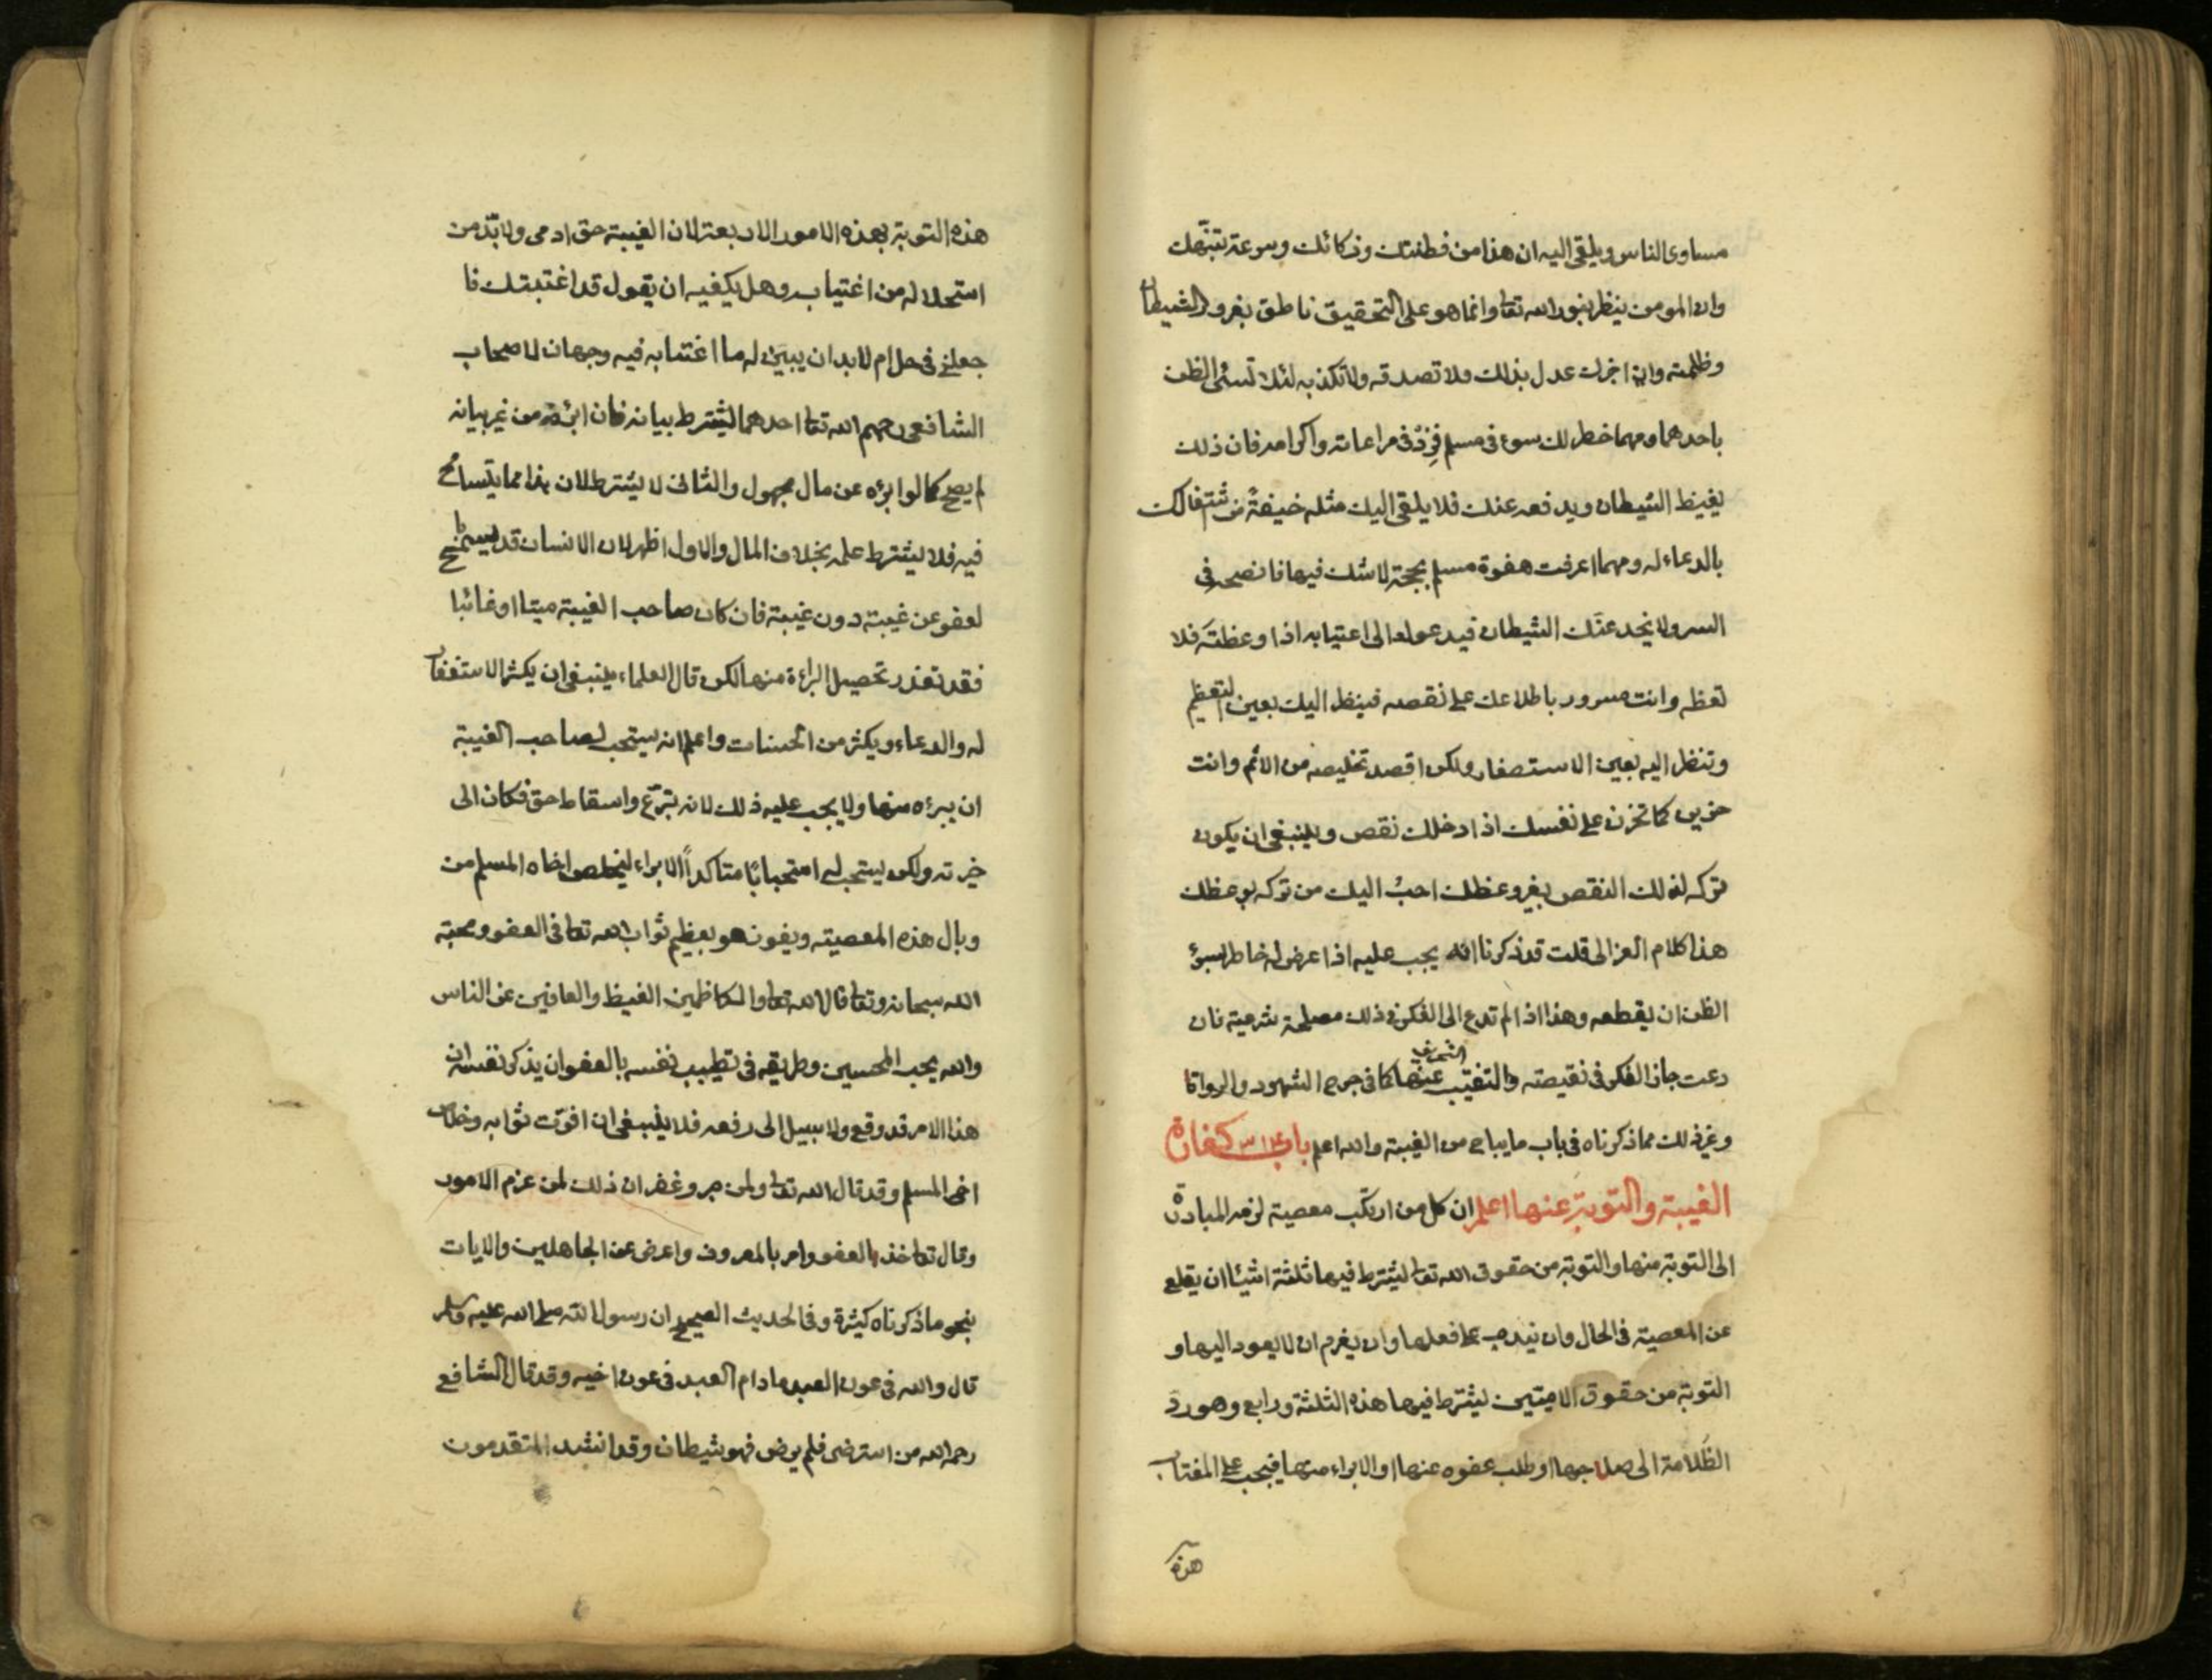 مساوى الناس ويلقى اليه ان هذا من فطنتك وذكائك وسرعة تنبّهك
وان المومن ينظر بنور الله تعا وانما هو على التحقيق ناطق بغرور الشيطان
وظلمته وان اخبرك عدل بذلك فلا تصدقه ولا تكذبه لئلا تسئ الظن
باحدهما ومهما خطر لك سوء فى مسلم فزد فى مراعاته واكرامه فان ذلك
يغيظ الشيطان ويدفعه عنك فلا يلقى اليك مثله خيفةً من اشتغالك
بالدعاء له ومهما عرفت هفوة مسلم بحجة لا شك فيها فانصحه فى
السر ولا يخدعنّك الشيطان فيدعوك الى اغتيابه اذا وعظته فلا
تعظه وانت مسرور باطلاعك على نقصه فينظر اليك بعين التعظيم
وتنظر اليه بعين الاستصغار ولكن اقصد تخليصه من الاثم وانت
حزين كما تحزن على نفسك اذا دخلك نقص وينبغى ان يكون
تركه لذلك النقص بغير وعظك احبّ اليك من تركه بوعظك
هذا كلام الغزالى قلت قد ذكرنا انه يجب عليه اذا عرض له خاطر بسوئ
الظن ان يقطعه وهذا اذا لم تدع الى الفكر فى ذلك مصلحة شرعية فان
دعت جاز الفكر فى نقيصته والتنقيب عنها كما فى جرح الشهود والرواة
وغير ذلك مما ذكرناه فى باب ما يباح من الغيبة والله اعلم باب كفارة
الغيبة والتوبة عنها اعلم ان كل من ارتكب معصية لزمه المبادرة
الى التوبة منها والتوبة من حقوق الله تعالى يشترط فيها ثلثة اشيئا ان يقلع
عن المعصية فى الحال وان يندم على فعلها وان يغرم ان لا يعود اليها و
التوبة من حقوق الادميين يشترط فيها هذه الثلثة ورابع وهو ردّ
الظلامة الى صاحبها او طلب عفوه عنها او الابراء منها فيجب على المغتاب
هذه
هذه التوبة بهذه الامور الاربعة لان الغيبة حق ادمى ولا بّد من
استحلاله من اغتيابه وهل يكفيه ان يقول قد اغتبتك فا
جعلنى فى حل ام لا بد ان يبين له ما اغتابه فيه وجهان لاصحاب
الشافعى رحهم الله تعا احدهما يشترط بيانه فان ابرئه من غير بيانه
لم يصح كما لو ابرئه عن مال مجهول والثانى لا يشترط لان هذا مما يتسامح
فيه فلا يشترط علمه بخلاف المال والاول اظهر لان الانسان قد يسمح
لعفو عن غيبة دون غيبة فان كان صاحب الغيبة ميتا او غائبا
فقد تعذر تحصيل البراءة منها لكن قال العلماء ينبغى ان يكثر الاستغفار
له والدعاء ويكثر من الحسنات واعلم انه يستحب لصاحب الغيبة
ان يبرءه منها ولا يجب عليه ذلك لانه تبرّع واسقاط حق فكان الى
خيرته ولكن يستحب له استحبابًا متاكداً الابراء ليخلص اخاه المسلم من
وبال هذه المعصية ويفوز هو بعظيم ثواب الله تعا فى العفو ومحبة
الله سبحانه وتعا قال الله تعا والكاظمين الغيظ والعافين عن الناس
والله يحب المحسنين وطريقه فى تطييب نفسه بالعفو ان يذكر نفسه ان
هذا الامر قد وقع ولا سبيل الى رفعه فلا ينبغى ان افوّت ثوابه وخلاص
اخى المسلم وقد قال الله تعا ولمن صبر وغفر ان ذلك لمن عزم الامور
وقال تعا خذ العفو وامر بالمعروف واعرض عن الجاهلين والايات
بنحو ما ذكرناه كثيرة وفى الحديث الصحيح ان رسول الله صلى الله عليه وسلم
قال والله فى عون العبد ما دام العبد فى عون اخيه وقد قال الشافعى
رحمه الله من استرضى فلم يرض فهو شيطان وقد انشد المتقدمون